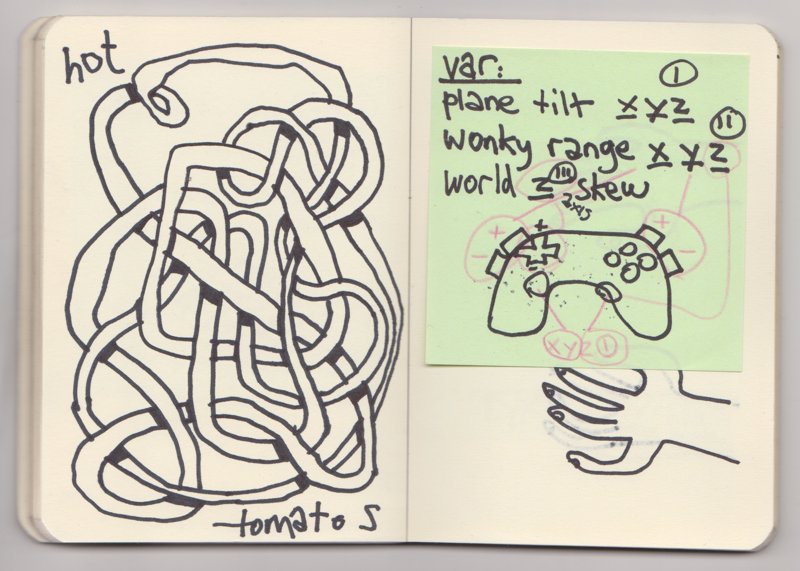 hot
tomato s
var:
plane tilt x y z I
wonky range x y z II
world z III skew
z axis
+
-
+
-
+
-
x y z I